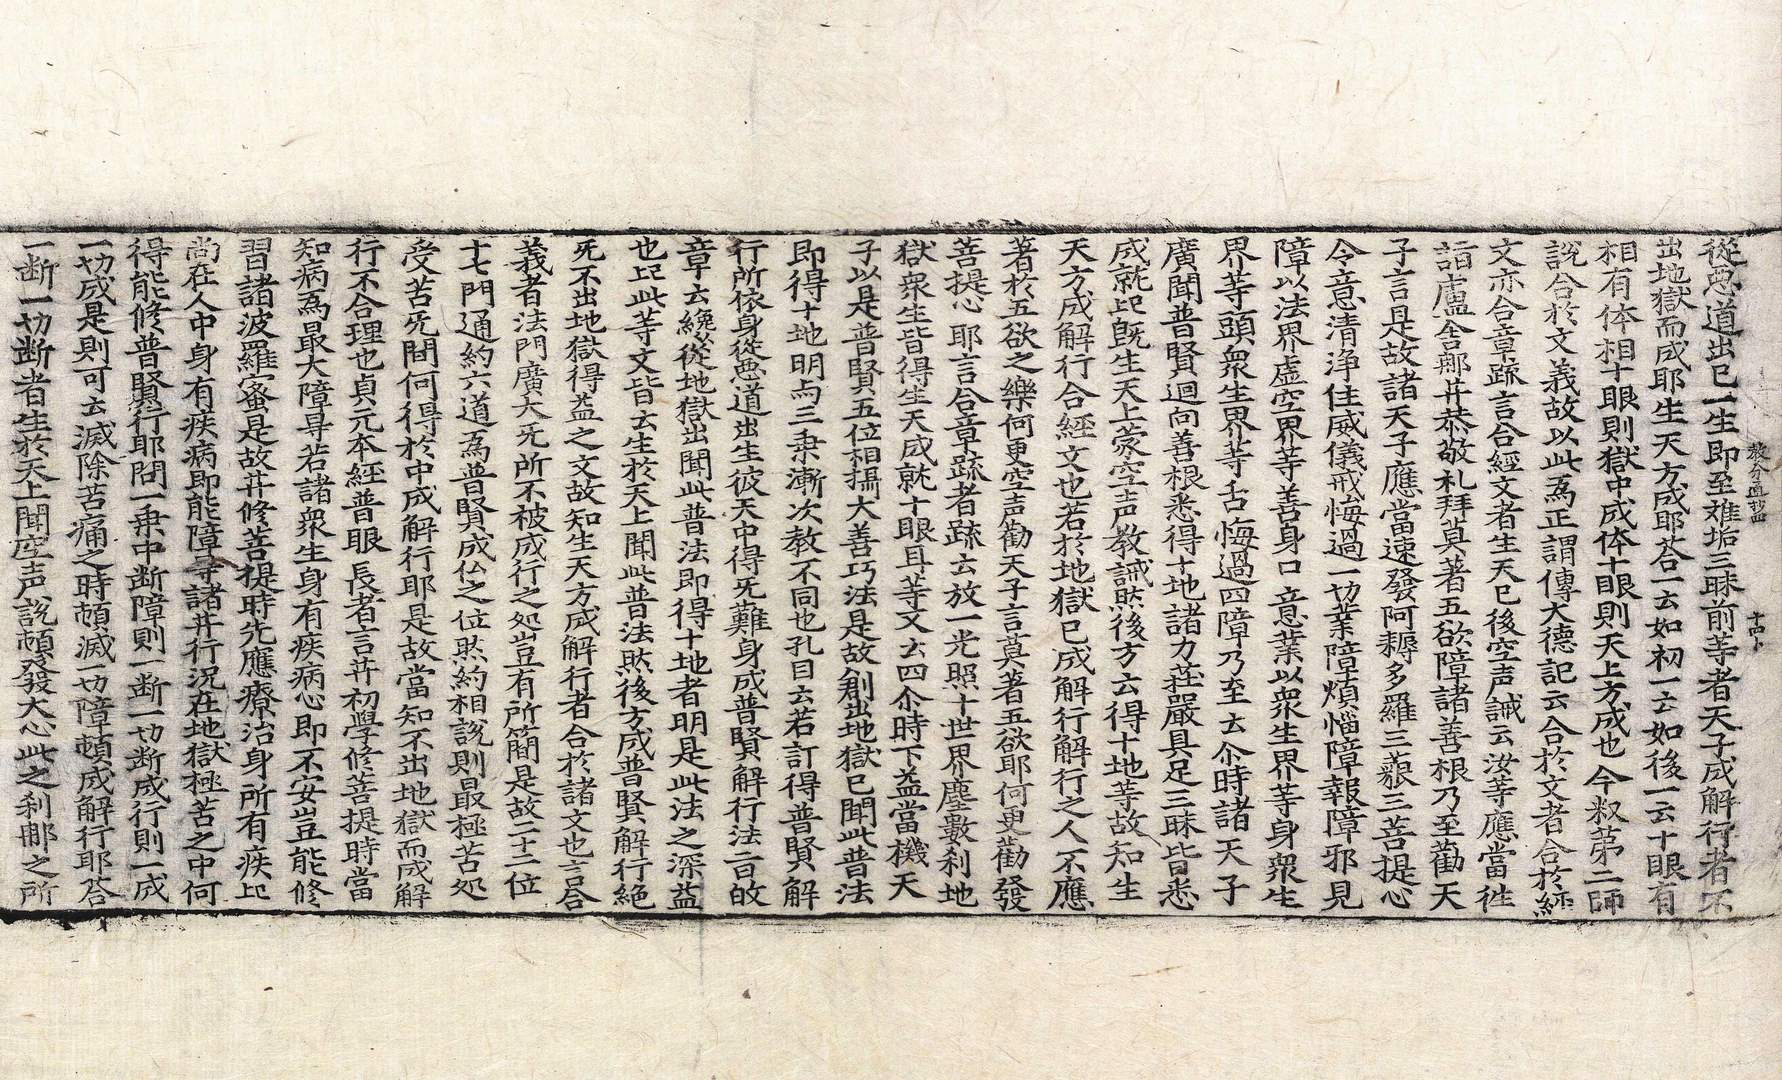 從惡道出已一生即至難垢三昧前等者天子成解行者不
出地獄而成耶生天方成耶荅一云如初一云如後一云十眼有
相有体相十眼則獄中成体十眼則天上方成也今叙苐二師
說合於文義故以此為正謂傳大德記云合於文者合於経
文亦合章䟽言合經文者生天已後空声誡云汝等應當徃
詣盧舍那井恭敬礼拜莫著五欲障諸善根乃至勸天
子言是故諸天子應當速發阿耨多羅三藐三菩提心
令意清淨住威儀戒悔過一切業障煩惱障報障邪見
障以法界虛空界等善身口意業以衆生界等身衆生
界等頭衆生界等舌悔過四障乃至去尒時諸天子
廣聞普賢迴向善根悉得十地諸力莊嚴具足三昧皆悉
成就記旣生天上蒙空声教誡然後方云得十地等故知生
天方成解行合經文也若於地獄已成解行解行之人不應
著於五欲之樂何更空声勸天子言莫著五欲耶何更勸發
菩提心耶言合章䟽者䟽云放一光照十世界塵數刹地
獄衆生皆得生天成就十眼耳等又云四尒時下益當機天
子以是普賢五位相攝大善巧法是故創出地獄已聞此普法
即得十地明与三乗漸次教不同也孔目云若訂得普賢解
行所依身從惡道出生彼天中得旡難身成普賢解行法一百故
章云纔從地獄出聞此普法即得十地者明是此法之深益
也記此等文皆云生於天上聞此普法然後方成普賢解行絕
旡不出地獄得益之文故知生天方成解行者合於諸文也言合
義者法門廣大旡所不被成行之処豈有所簡是故二十二位
十七門通約六道為普賢成仏之位然約相說則最極苦処
受苦旡間何得於中成解行耶是故當知不出地獄而成解
行不合理也貞元本經普眼長者言井初學修菩提時當
知病為最大障㝵若諸衆生身有疾病心即不安豈能修
習諸波羅蜜是故井修菩提時先應療治身所有疾記
尚在人中身有疾病即能障㝵諸井行況在地獄極苦之中何
得能修普賢行耶問一乗中断障則一断一切断成行則一成
一切成是則可云滅除苦痛之時頓滅一切障頓成解行耶荅
一断一切断者生於天上聞空声說頓發大心此之刹那之所